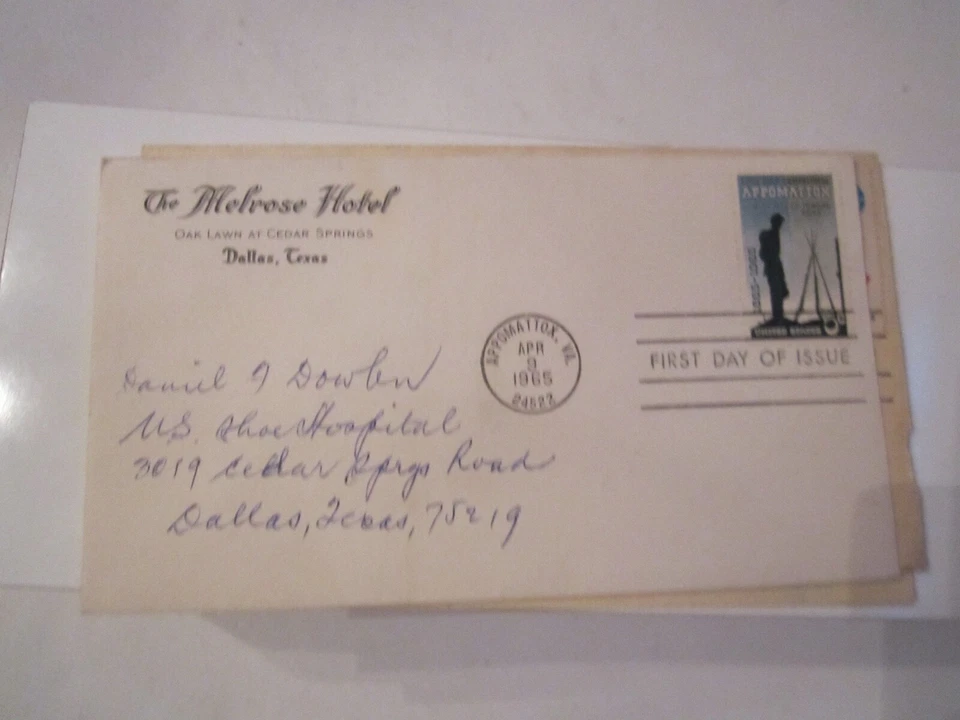 The Melrose Hotel
OAK LAWN AT CEDAR SPRINGS
Dallas, Texas
APPOMATTOX
1865-1965
UNITED STATES
APPOMATTOX, VA.
APR
9
1965
24522
FIRST DAY OF ISSUE
Daniel J Dowlen
U.S. Shoe Hospital
3019 Cedar Sprgs Road
Dallas, Texas, 75219